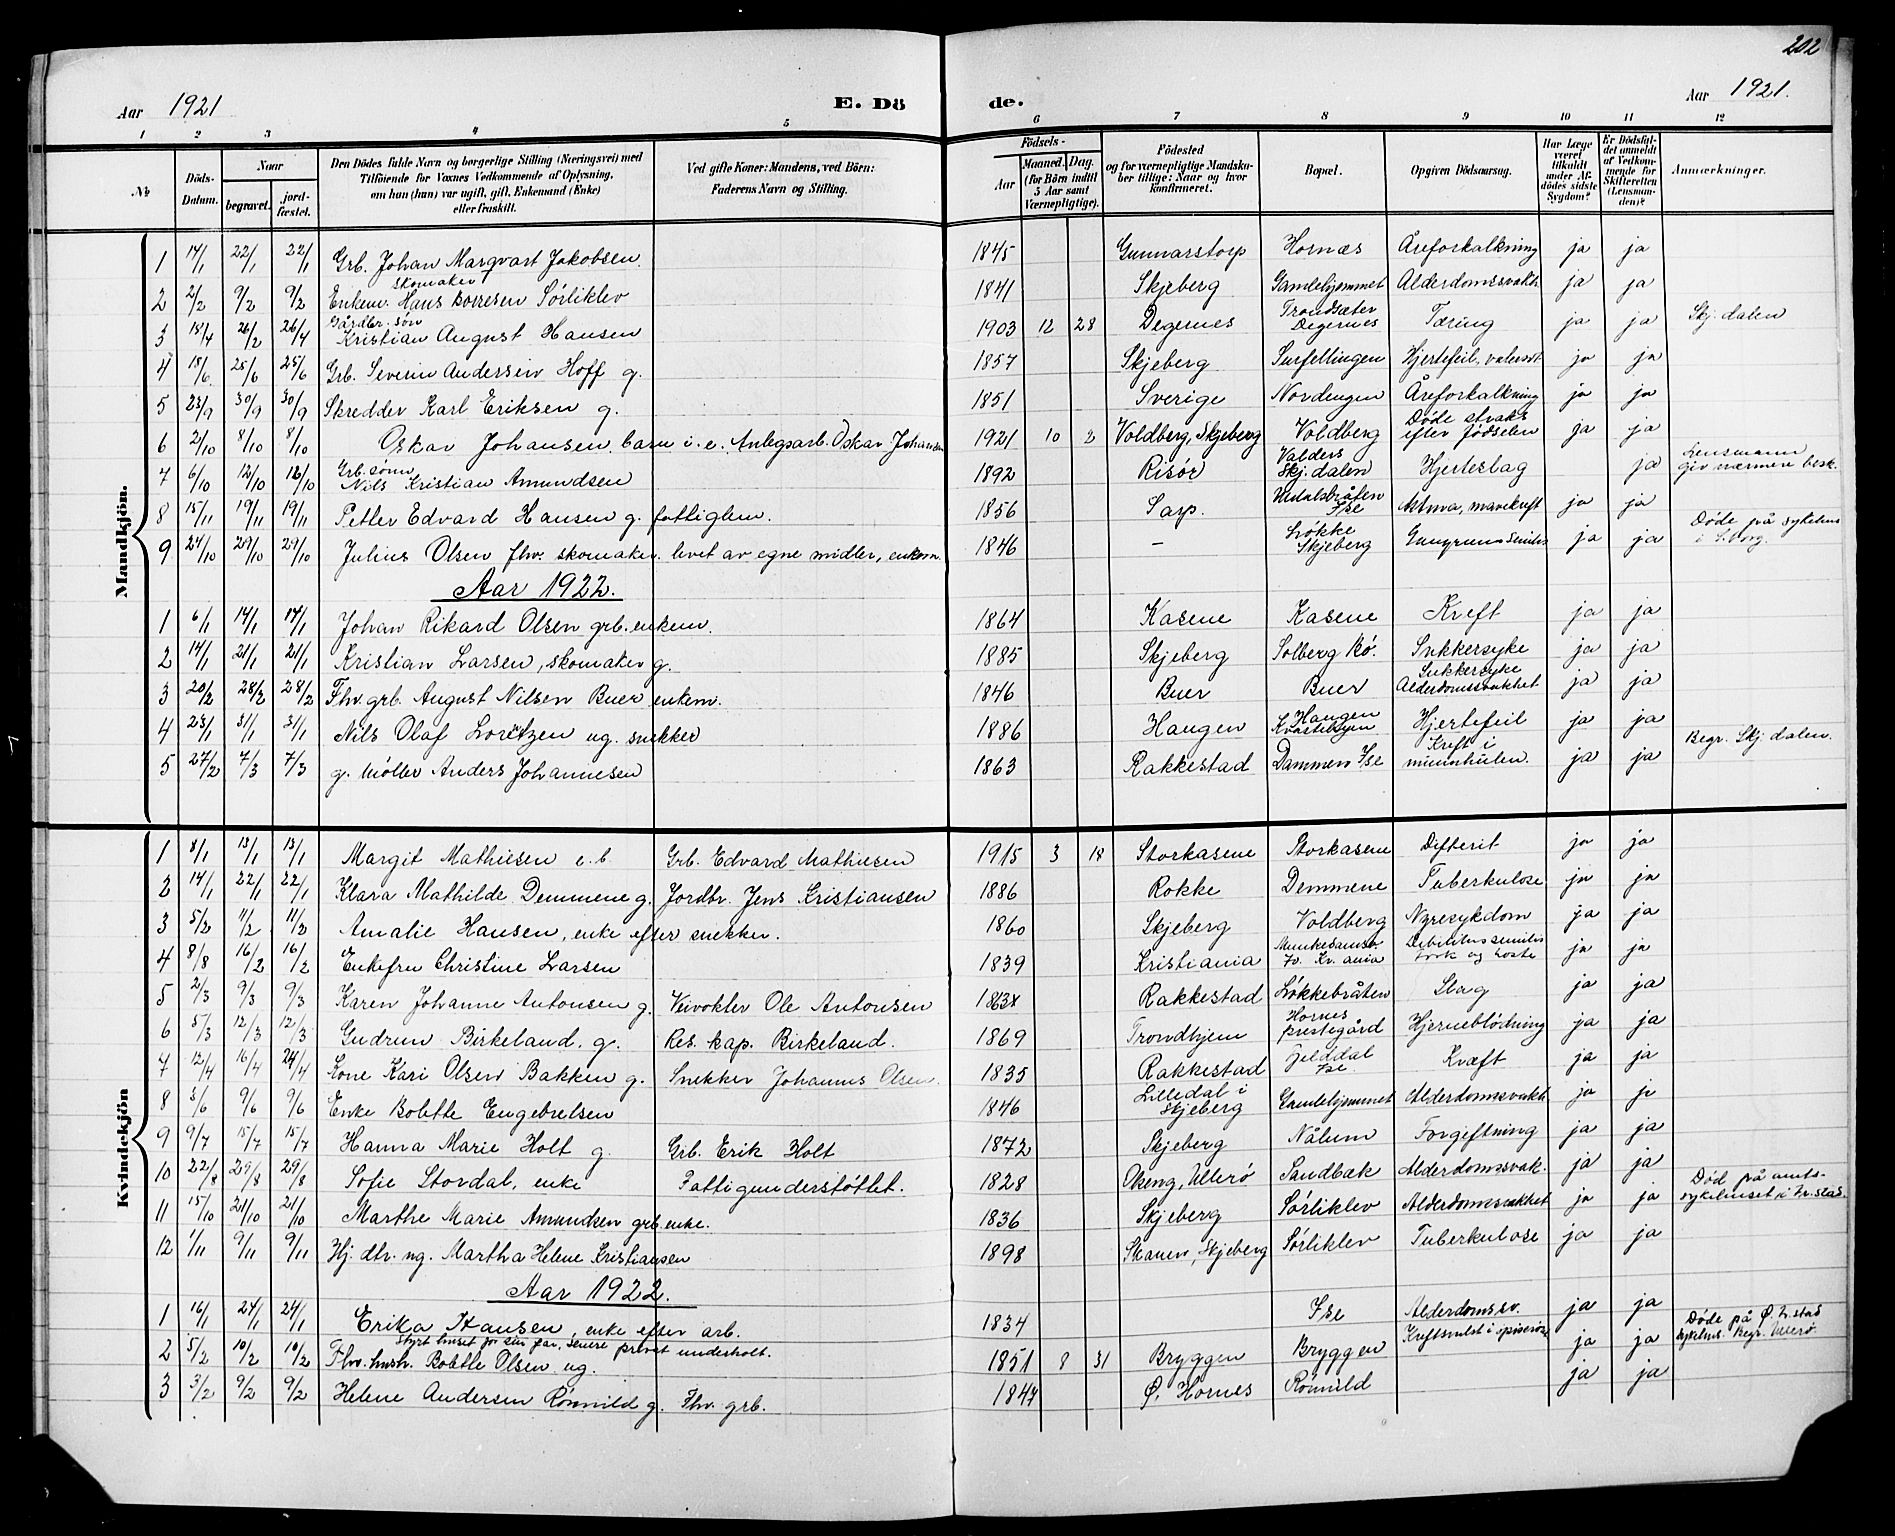 202
Aar 1921 E. Dö de. Aar 1921.
1 2 3 4 5 6 7 8 9 10 11 12
№ Döds-Datum. Naar begravet. jordfæstet. Den Dödes fulde Navn og borgerlige Stilling (Næringsvei) med Tilföiende for Voxnes Vedkommende af Oplysning, om hun (han) var ugift, gift, Enkemand (Enke) eller fraskilt. Ved gifte Koner: Mandens, ved Börn: Faderens Navn og Stilling. Födsels- Aar Maaned. Dag. (for Börn indtil 5 Aar samt Værnepligtige). Födested og for værnepligtige Mandskaber tillige: Naar og hvor konfirmeret. Bopæl. Opgiven Dödsaarsag. Har Læge været tilkaldt under Afdödes sidste Sygdom? Er Dödsfaldet anmeldt af Vedkommende for Skifteretten (Lensmanden)? Anmærkninger.
Mandkjön.
1 14/1 22/1 22/1 Grb. Johan Margvart Jakobsen 1845 Gunnarstorp Hornæs Åreforkalkning ja ja
2 2/2 9/2 9/2 Enkem. skomaker Hans Borresen Sørliklev 1841 Skjeberg Gamlehjemmet Alderdomssvakh. ja ja
3 18/4 26/2 26/4 Gårdbr. søn Kristian August Hansen 1903 12 28 Degernes Trondsæter Degernes Tæring ja ja Skj. dalen
4 18/6 25/6 25/6 Grb. Severin Andersen Hoff g. 1857 Skjeberg Surfellingen Hjertefeil, vatersot ja ja
5 23/9 30/9 30/9 Skredder Karl Eriksen g. 1851 Sverige Nordengen Åreforkalkning ja ja
6 2/10 8/10 8/10 Oskar Johansen, barn i. e. Anlegsarb. Oskar Johansen 1921 10 2 Voldberg, Skjeberg Voldberg Døde straks efter fødselen ja ja
7 6/10 12/10 12/10 Grb. sønn Nils Kristian Amundsen 1892 Risør Valders Skj. dalen Hjerteslag ja Lensmann giv nærmere besk.
8 15/11 19/11 19/11 Petter Edvard Hansen g. fattiglem. 1856 Sarp. Ise Astma, mavekreft ja ja
9 24/10 29/10 29/10 Julius Olsen fhv. skomaker. levet av egne midler, enkem. 1846 – Løkke Skjeberg Gangrena senilis ja ja Døde på sykehus i S.borg.
Aar 1922.
1 6/1 14/1 14/1 Johan Rikard Olsen grb. enkem. 1864 Kasene Kasene Kreft ja ja
2 14/1 21/1 21/1 Kristian Larsen, skomaker g. 1885 Skjeberg Solberg Bø. Sukkersyke ja ja
3 20/2 28/2 28/2 Fhv. grb. August Nilsen Buer enkem. 1846 Buer Buer Sukkersyke Alderdomssvakhet ja ja
4 23/1 31/1 31/1 Nils Olaf Loretzen ug. snekker 1886 Haugen Haugen Hjertefeil ja ja
5 27/2 7/3 7/3 g. Møller Anders Johannesen 1863 Rakkestad Dammen Ise Kreft i munnhulen. ja ja Begr. Skj. dalen.
Kvindekjön
1 8/1 13/1 13/1 Margit Mathiesen e. b Grb. Edvard Mathiesen 1915 3 18 Storkasene Storkasene Difterit ja ja
2 14/1 22/1 22/1 Klara Mathilde Demmene g. Jordbr. Jens Kristiansen 1886 Rokke Demmene Tuberkulose ja ja
3 5/2 11/2 11/2 Amalie Hansen, enke efter snekker. 1860 Skjeberg Voldberg Nyresykdom ja ja
4 8/8 16/2 16/2 Enkefru Christine Larsen 1839 Kristiania Kr. ania Debilitas senilis og hoste ja ja
5 2/3 9/3 9/3 Karen Johanne Antonsen g. Veivokter Ole Antonsen 1863 Rakkestad Løkkebråten Slag ja ja
6 5/3 12/3 12/3 Gudrun Birkeland. g. Res. kap. Birkeland. 1869 Trondhjem Hornes prestegård Hjerneblødning ja ja
7 12/4 16/4 24/4 Kone Kari Olsen Bakken g. Snekker Johannes Olsen. 1835 Rakkestad Jelddal Ise Kræft ja ja
8 3/6 9/6 9/6 Enke Bolette Engebretsen 1846 Lilledal i Skjeberg Gamlehjemmet Alderdomssvakh. ja ja
9 9/7 15/7 15/7 Hanna Marie Holt g. Grb. Erik Holt 1872 Skjeberg Nålum Forgiftning ja ja
10 22/8 29/8 29/8 Sofie Stordal, enke Fattigunderstøttet. 1828 Økeng, Ullerø Sandbæk Alderdomssvak. ja ja Død på amtssykehuset i Fr. stad.
11 15/10 21/10 21/10 Marthe Marie Amundsen grb. enke. 1836 Skjeberg Sørliklev Alderdomssvakhet ja ja
12 1/11 9/11 9/11 Hj. dtr. ug. Martha Helene Kristiansen 1898 Skauen, Skjeberg Sørliklev Tuberkulose ja ja
Aar 1922.
1 16/1 24/1 24/1 Erika Hansen, enke efter arb. 1834 Ise Alderdomssv. ja ja
2 5/2 10/2 10/2 Styrt huset for sin far, senere privat underholt. Fhv. hush. Bolette Olsen ug. 1851 8 31 Bryggen Bryggen Kreftsvulst i spiserør ja ja Døde på Fr. stad sykehus. Begr. Ullerø
3 3/2 9/2 9/2 Helene Andersen Rønnild g. Fhv. grb. 1847 Ø. Hornes Rønnild ja ja